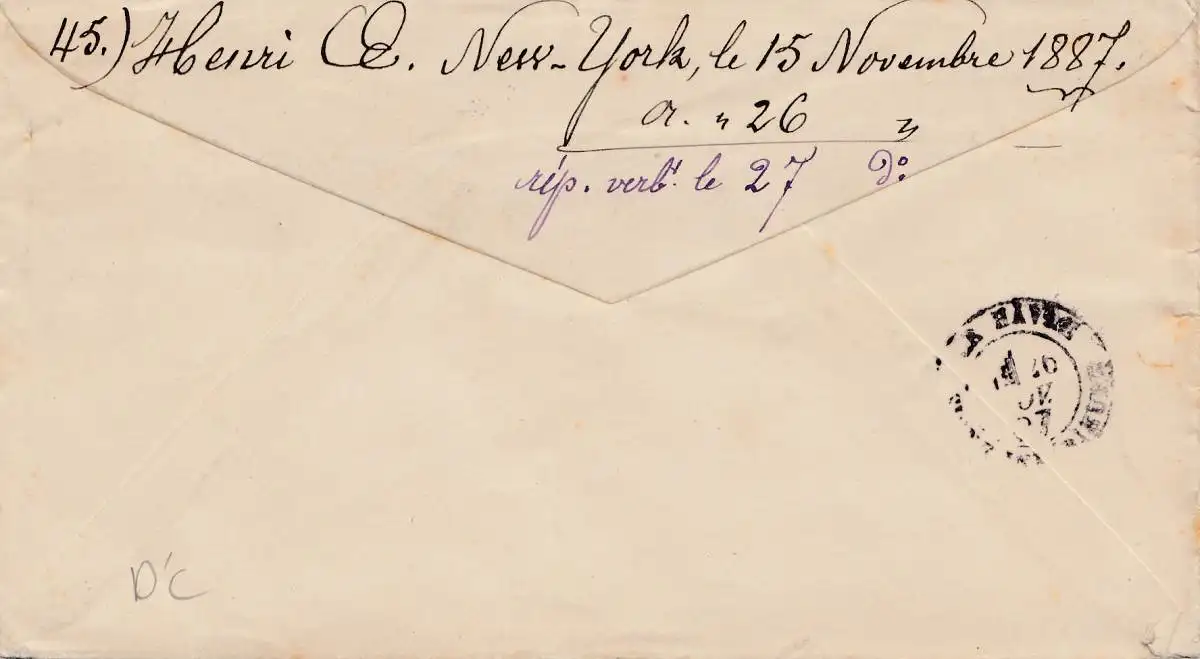 45.) Henri Œ. New-York, le 15 Novembre 1887.
a. " 26 "
rép. verb.t le 27 do
HAVRE
26
D'C